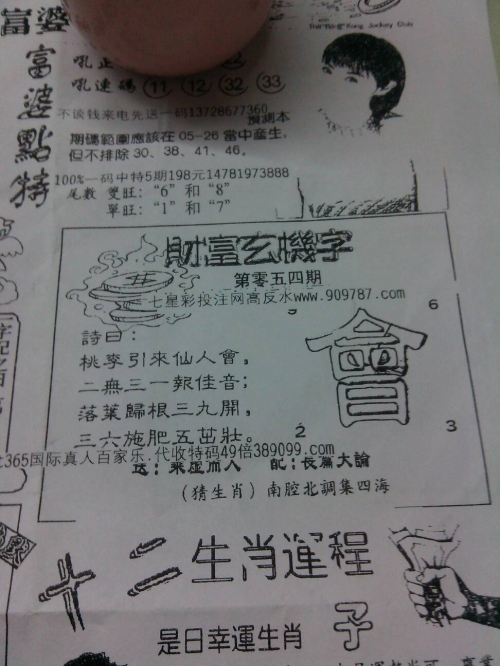 富婆
富婆點特
Hong Kong Jockey Club
吼連碼 11 12 32 33
不谈钱来电先送一码13728677360
預測本
期碼範圍應該在05-26當中産生,
但不排除30、38、41、46。
100%一码中特5期198元14781973888
尾數 雙旺:“6”和“8”
單旺:“1”和“7”
財富玄機字
第零五四期
七星彩投注网高反水www.909787.com
6
詩曰:
桃李引來仙人會,
會
二無三一報佳音;
落葉歸根三九開,
2
3
三六施肥五茁壯。
365国际真人百家乐.代收特码49倍389099.com
送:乘虛而入 配:長篇大論
(猜生肖)南腔北調集四海
十二生肖運程
是日幸運生肖 子